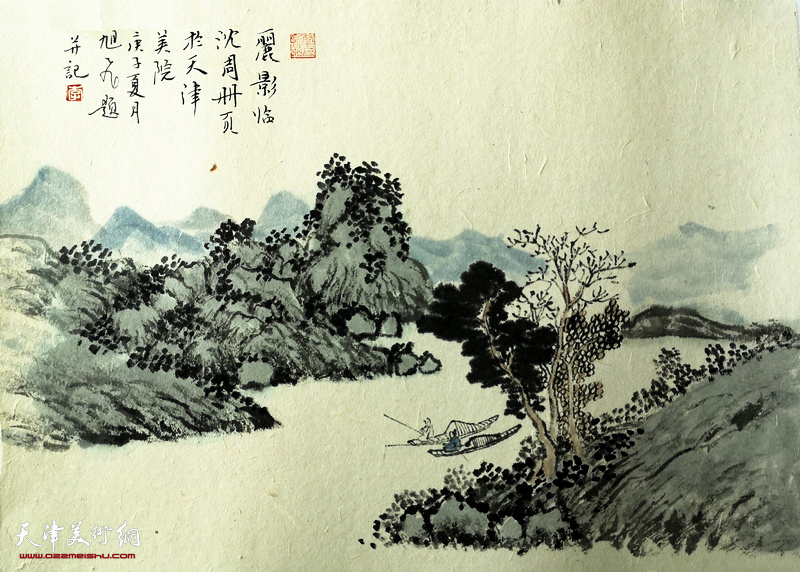 麗影临
沈周册页
於天津
美院
庚子夏月
旭飞題
并記
天津美術網
www.022meishu.com